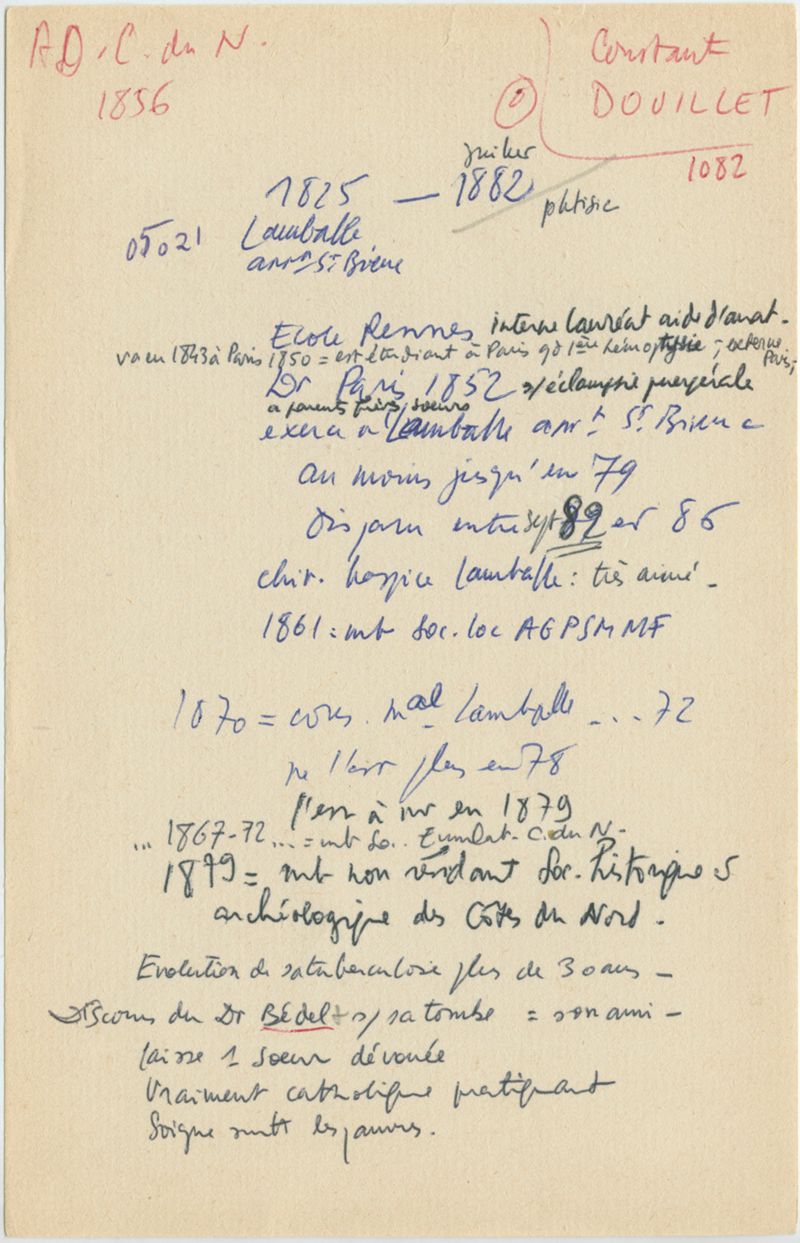 AD. C. du N.
1856
Constant
DOUILLET
1082
juillet
1825 — 1882
phtisie
05021 Lamballe
arrt St Brieuc
Ecole Rennes interne lauréat aide d'anat.
va en 1843 à Paris 1850 = est étudiant à Paris qd 1ère hémoptysie ; externe
Paris ;
Dr Paris 1852 s/éclampsie puerpérale
a parents frères/soeurs
exerce à Lamballe arrt St Brieuc
au moins jusqu'en 79
Disparu entre sept 82 et 86
chir. hospice Lamballe : très aimé -
1861 = mb Soc. loc AGPSMMF
1870 = cons. mal Lamballe ... 72
ne l'est plus en 78
l'est à nv en 1879
... 1867-72 ... = mb Soc. Emulat. C. du N-
1879 = mb non résidant Soc. historique &
archéologique des Côtes du Nord.
Evolution de sa tuberculose plus de 30 ans -
Discours du Dr Bédel s/ sa tombe = son ami -
laisse 1 soeur dévouée
Vraiment catholique pratiquant
Soigne surtt les pauvres.